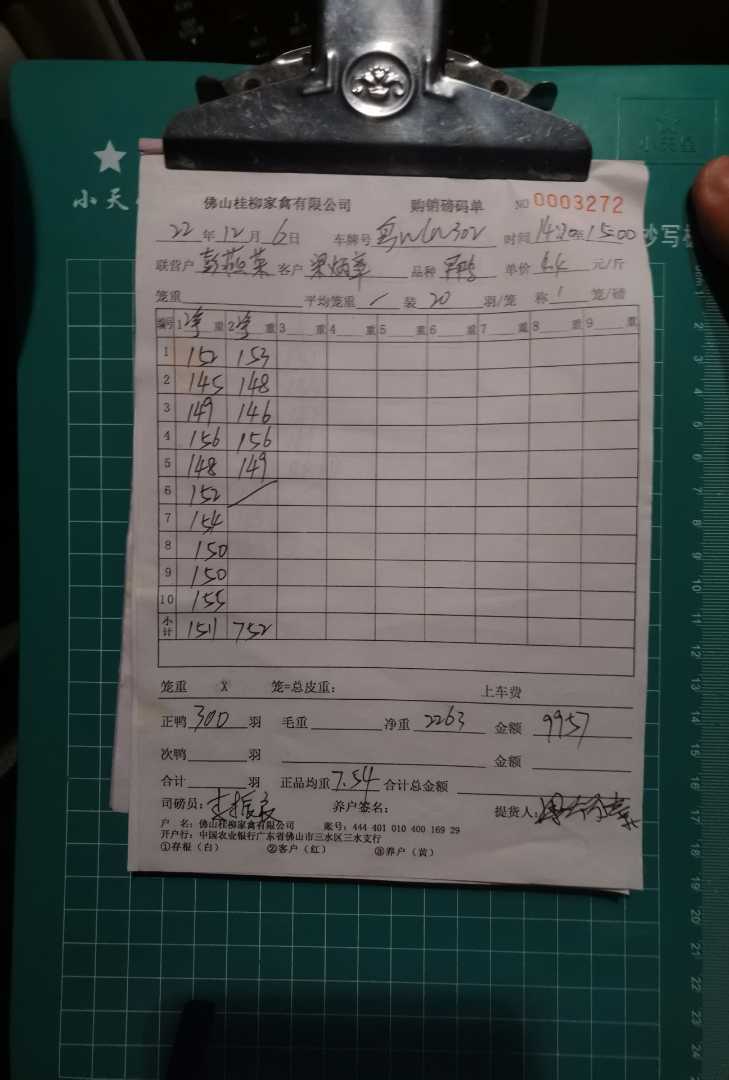 小天
佛山桂柳家禽有限公司 购销磅码单 NO 0003272
22年12月6日 车牌号 时间 至15:00
抄写
联营户 客户 品种 单价4.4元/斤
笼重 平均笼重 / 装20羽/笼 称1笼/磅
编号 1净重 2净重 3 重 4 重 5 重 6 重 7 重 8 重 9 重
1 152 153
2 145 148
3 149 146
4 156 156
5 148 149
6 152
7 154
8 150
9 150
10 155
小计 1511 752
笼重 X 笼=总皮重: 上车费
正鸭300羽 毛重 净重2263 金额9957
次鸭 羽 金额
合计 羽 正品均重7.54 合计总金额
司磅员: 养户签名: 提货人:
户 名: 佛山桂柳家禽有限公司 账号: 444 401 010 400 169 29
开户行: 中国农业银行广东省佛山市三水区三水支行
①存根(白) ②客户(红) ③养户(黄)